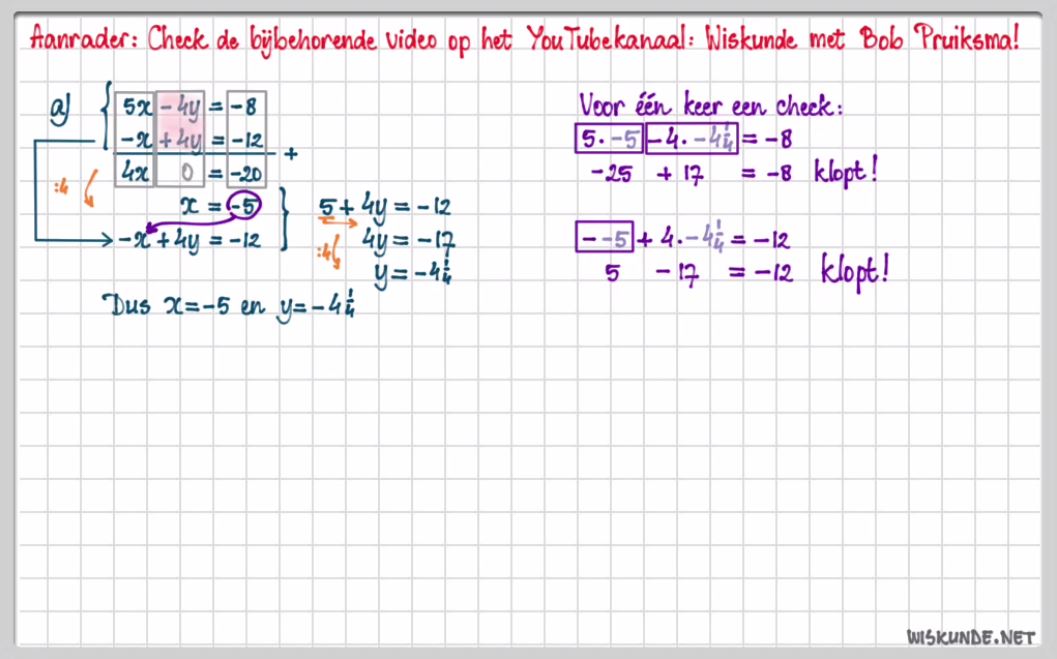 Aanrader: Check de bijbehorende video op het YouTubekanaal: Wiskunde met Bob Pruiksma!
a) { 5x - 4y = -8
-x + 4y = -12
+
4x 0 = -20
:4
x = -5
-x + 4y = -12 }
5 + 4y = -12
4y = -17
:4
y = -4¼
Dus x = -5 en y = -4¼
Voor één keer een check:
5 · -5 - 4 · -4¼ = -8
-25 + 17 = -8 klopt!
- -5 + 4 · -4¼ = -12
5 - 17 = -12 klopt!
WISKUNDE.NET